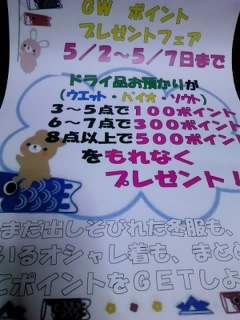 GW ポイント
プレゼントフェア
5/2～5/7日まで
ドライ品お預かりが
(ウエット・バイオ・ソウト)
3～5点で100ポイント
6～7点で300ポイント
8点以上で500ポイント
をもれなく
プレゼント!
まだ出しそびれた冬服も、
いるオシャレ着も、まとめ
てポイントをGETしよ